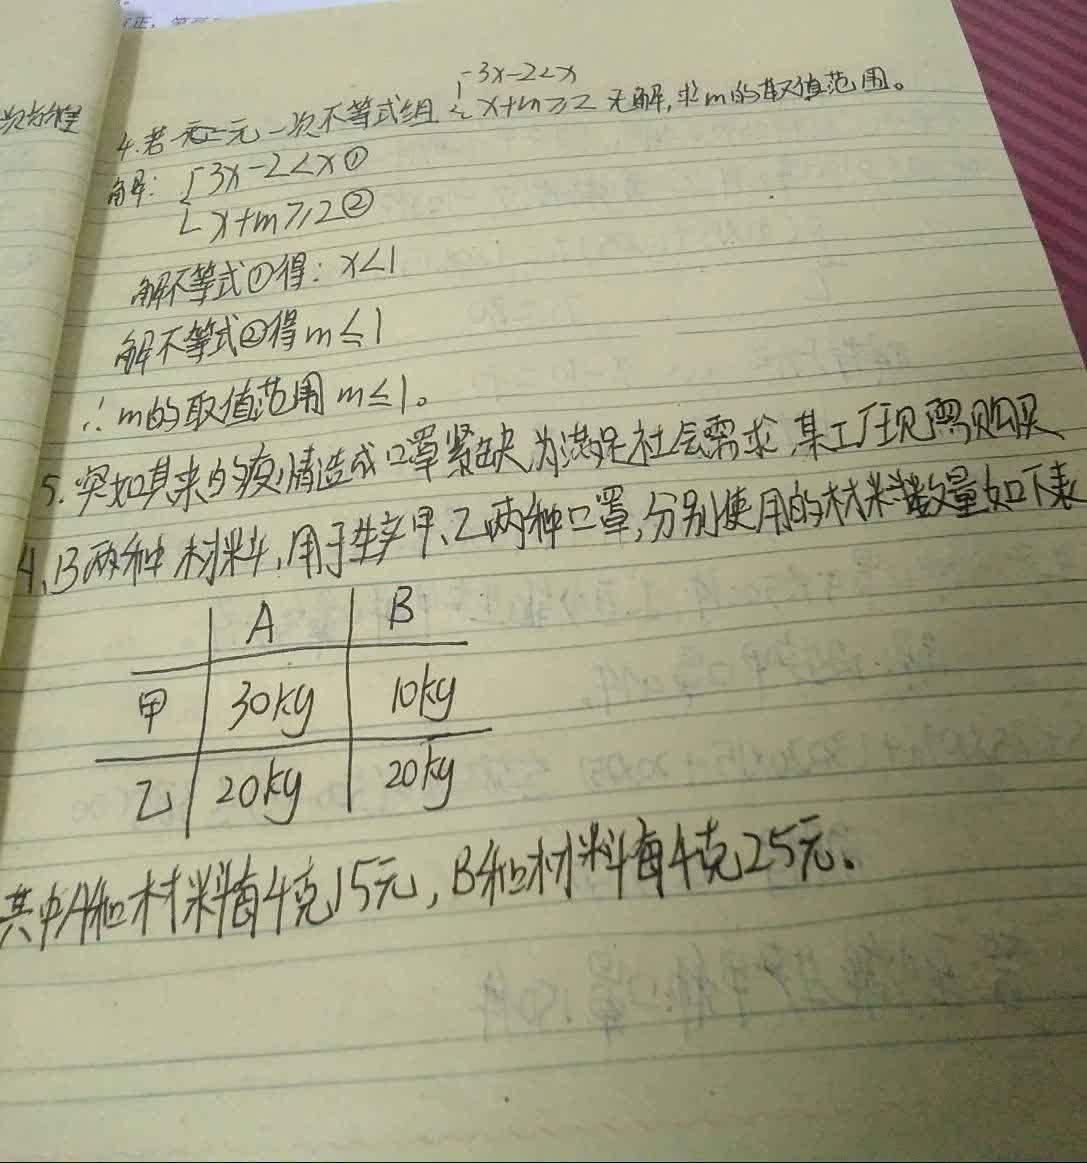 次方程
4.若一元一次不等式组{3x-2<x
x+m≥2 无解,求m的取值范围。
解: {3x-2<x①
x+m≥2②
解不等式①得: x<1
解不等式②得m≤1
∴m的取值范围m≤1。
5.突如其来的疫情造成口罩紧缺,为满足社会需求,某工厂现需购买
A、B两种材料,用于生产甲、乙两种口罩,分别使用的材料数量如下表
A B
甲 30kg 10kg
乙 20kg 20kg
其中A种材料每千克15元,B种材料每千克25元。